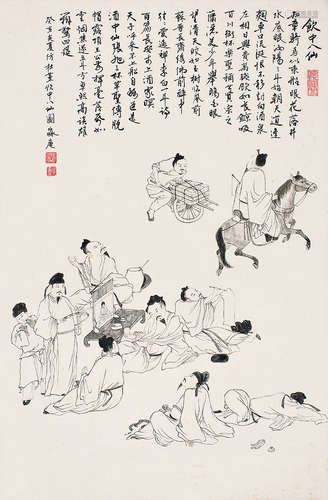 飲中八仙
知章騎馬似乘船眼花落井
水底眠汝陽三斗始朝天道逢
麴車口流涎恨不移封向酒泉
左相日興費萬錢飲如長鯨吸
百川銜杯樂聖稱世賢宗之
瀟洒美少年舉觴白眼
望青天皎如玉樹臨風前
蘇晉長齋繡佛前醉中往
往愛逃禪李白一斗詩
百篇長安市上酒家眠
天子呼來不上船自稱臣是
酒中仙張旭三杯草聖傳脫
帽露頂王公前揮毫落紙如
雲煙焦遂五斗方卓然高談雄
辯驚四筵
癸亥夏仿杜堇飲中八仙圖